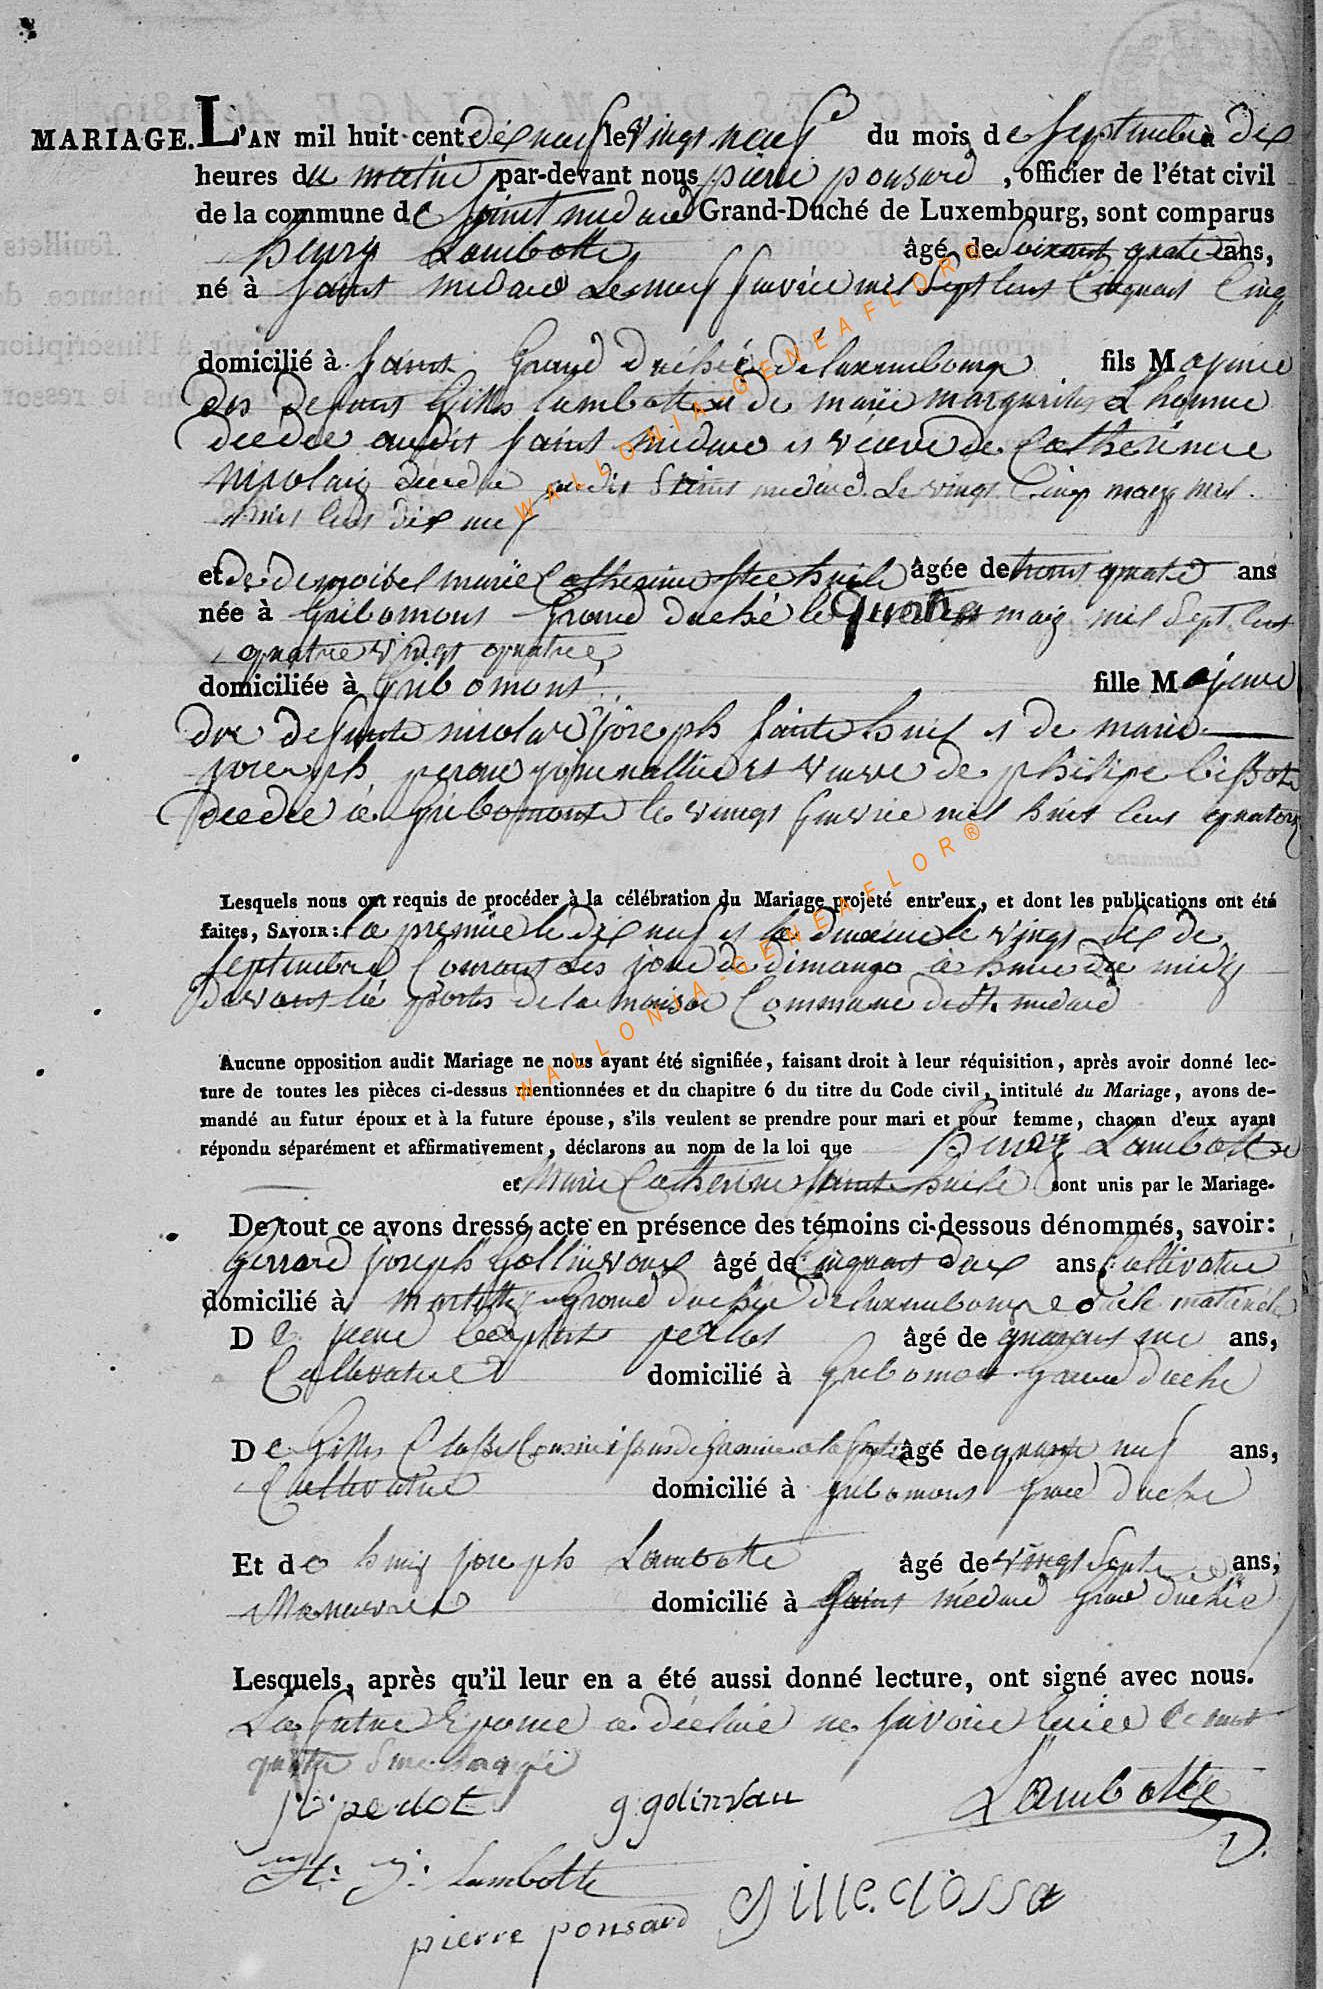 MARIAGE. L'AN mil huit-cent dixneuf le vingt neuf du mois de septembre à dix
heures du matin par-devant nous pierre ponsard, officier de l'état civil
de la commune de saint medard Grand-Duché de Luxembourg, sont comparus
henry Lambotte âgé de soixant quatre ans,
né à saint medard Le neuf fevrie mil sept cent Cinquant Cinq
domicilié à saint Grand duchéé de luxembourg fils Majeure
des defunt Gilles lambotte et de marie margurite Lhomme
decdée audit saint medard et veuve de Catherinne
nicolay décedée audit saint medard Le vingt Cinq marz mil
huit cent dix neuf
et de demoisel marie Catherinne Ste huile âgée de trent quatre ans
née à Gribomont Grand duché le quatre marz mil sept cent
quatre vingt quatre
domiciliée à Gribomont fille Majeure
de defunt nicolas joseph sainte huil et de marie
joseph perau journalliere et veuve de philipe
decdée à gribomont le vingt fevrie mil huit cent quatorz
Lesquels nous ont requis de procéder à la célébration du Mariage projeté entr'eux, et dont les publications ont été
faites, SAVOIR: la premiere le dix neuf et la deuxieme le vingt six de
septembre Courant des jour de dimange a heure de midy
devant la porte de la maison Commune de St. medard
Aucune opposition audit Mariage ne nous ayant été signifiée, faisant droit à leur réquisition, après avoir donné lec-
ture de toutes les pièces ci-dessus mentionnées et du chapitre 6 du titre du Code civil, intitulé du Mariage, avons de-
mandé au futur époux et à la future épouse, s'ils veulent se prendre pour mari et pour femme, chacun d'eux ayant
répondu séparément et affirmativement, déclarons au nom de la loi que henry Lambotte
et Marie Catherinne sainte huile sont unis par le Mariage.
De tout ce avons dressé acte en présence des témoins ci-dessous dénommés, savoir:
Gerrard joseph Gollinvaux âgé de Cinquant deux ans, Cultivateur
domicilié à Grand duchée de luxembourg
De piere perlot âgé de quarant ans,
Cultivateur domicilié à Gribomont Grand duché
De Gilles âgé de neuf ans,
Cultivateur domicilié à gribomont grand duché
Et de henry joseph Lambotte âgé de vingt sept ans,
Manuvre domicilié à saint médard grand duchée
Lesquels, après qu'il leur en a été aussi donné lecture, ont signé avec nous.
La future Epouse a déclaré ne savoir
perlot g golinvau Lambotte
H: J: Lambotte
pierre ponsard gille clossa
WALLONIA-GENEAFLOR®
WALLONIA-GENEAFLOR®